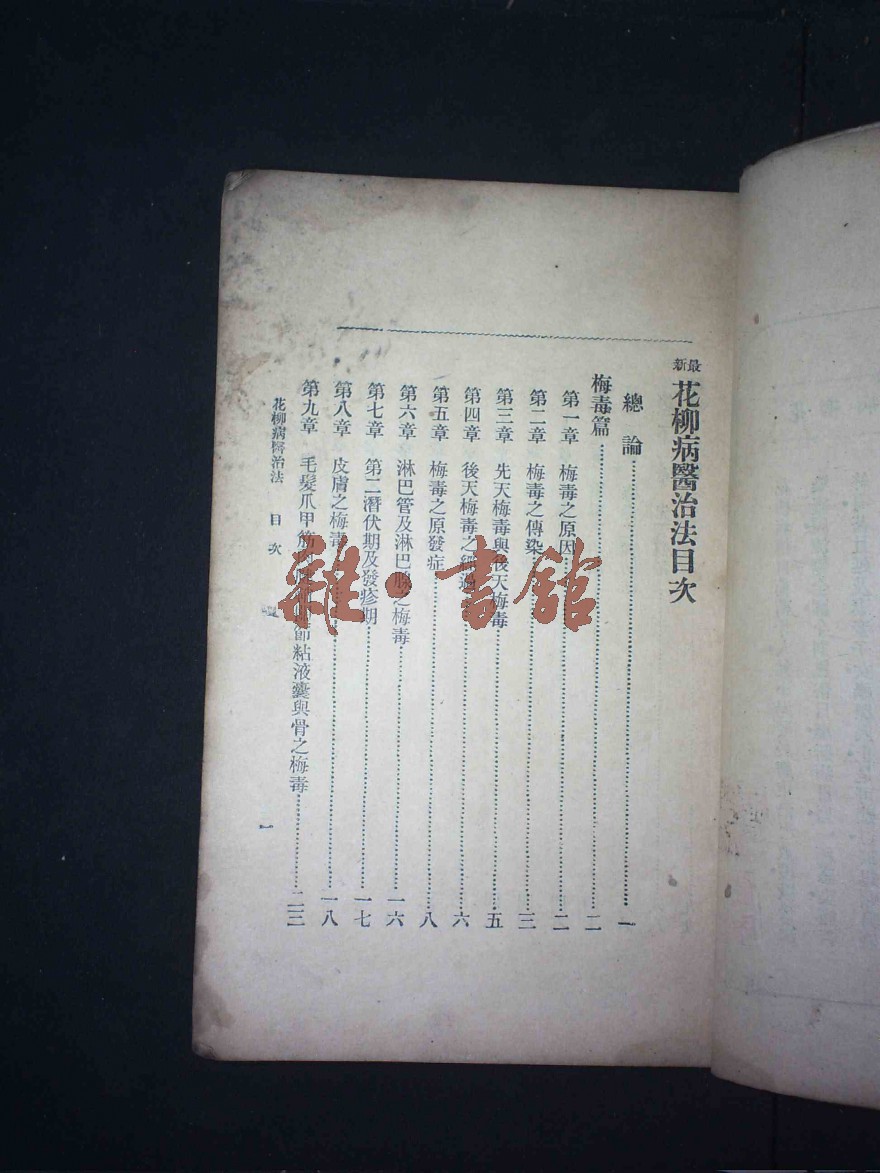 最新花柳病醫治法目次
總論 一
梅毒篇 二
第一章 梅毒之原因 二
第二章 梅毒之傳染 三
第三章 先天梅毒與後天梅毒 五
第四章 後天梅毒之經過 六
第五章 梅毒之原發症 八
第六章 淋巴管及淋巴腺之梅毒 一六
第七章 第二潛伏期及發疹期 一七
第八章 皮膚之梅毒 一八
第九章 毛髮爪甲筋節粘液囊與骨之梅毒 二三
花柳病醫治法 目次 一
雜·書館